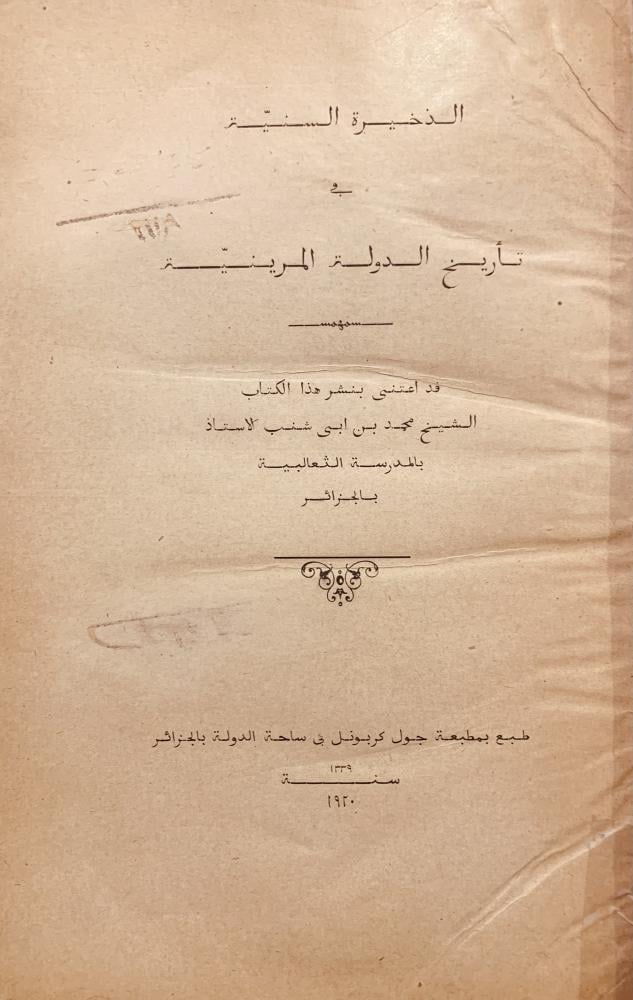 الذخيرة السنيّة
في
تأريخ الدولة المرينيّة
قد اعتنى بنشر هذا الكتاب
الشيخ محمد بن ابى شنب الاستاذ
بالمدرسة الثعالبية
بالجزائر
طبع بمطبعة جول كربونل فى ساحة الدولة بالجزائر
١٣٣٩
سنة
١٩٢٠